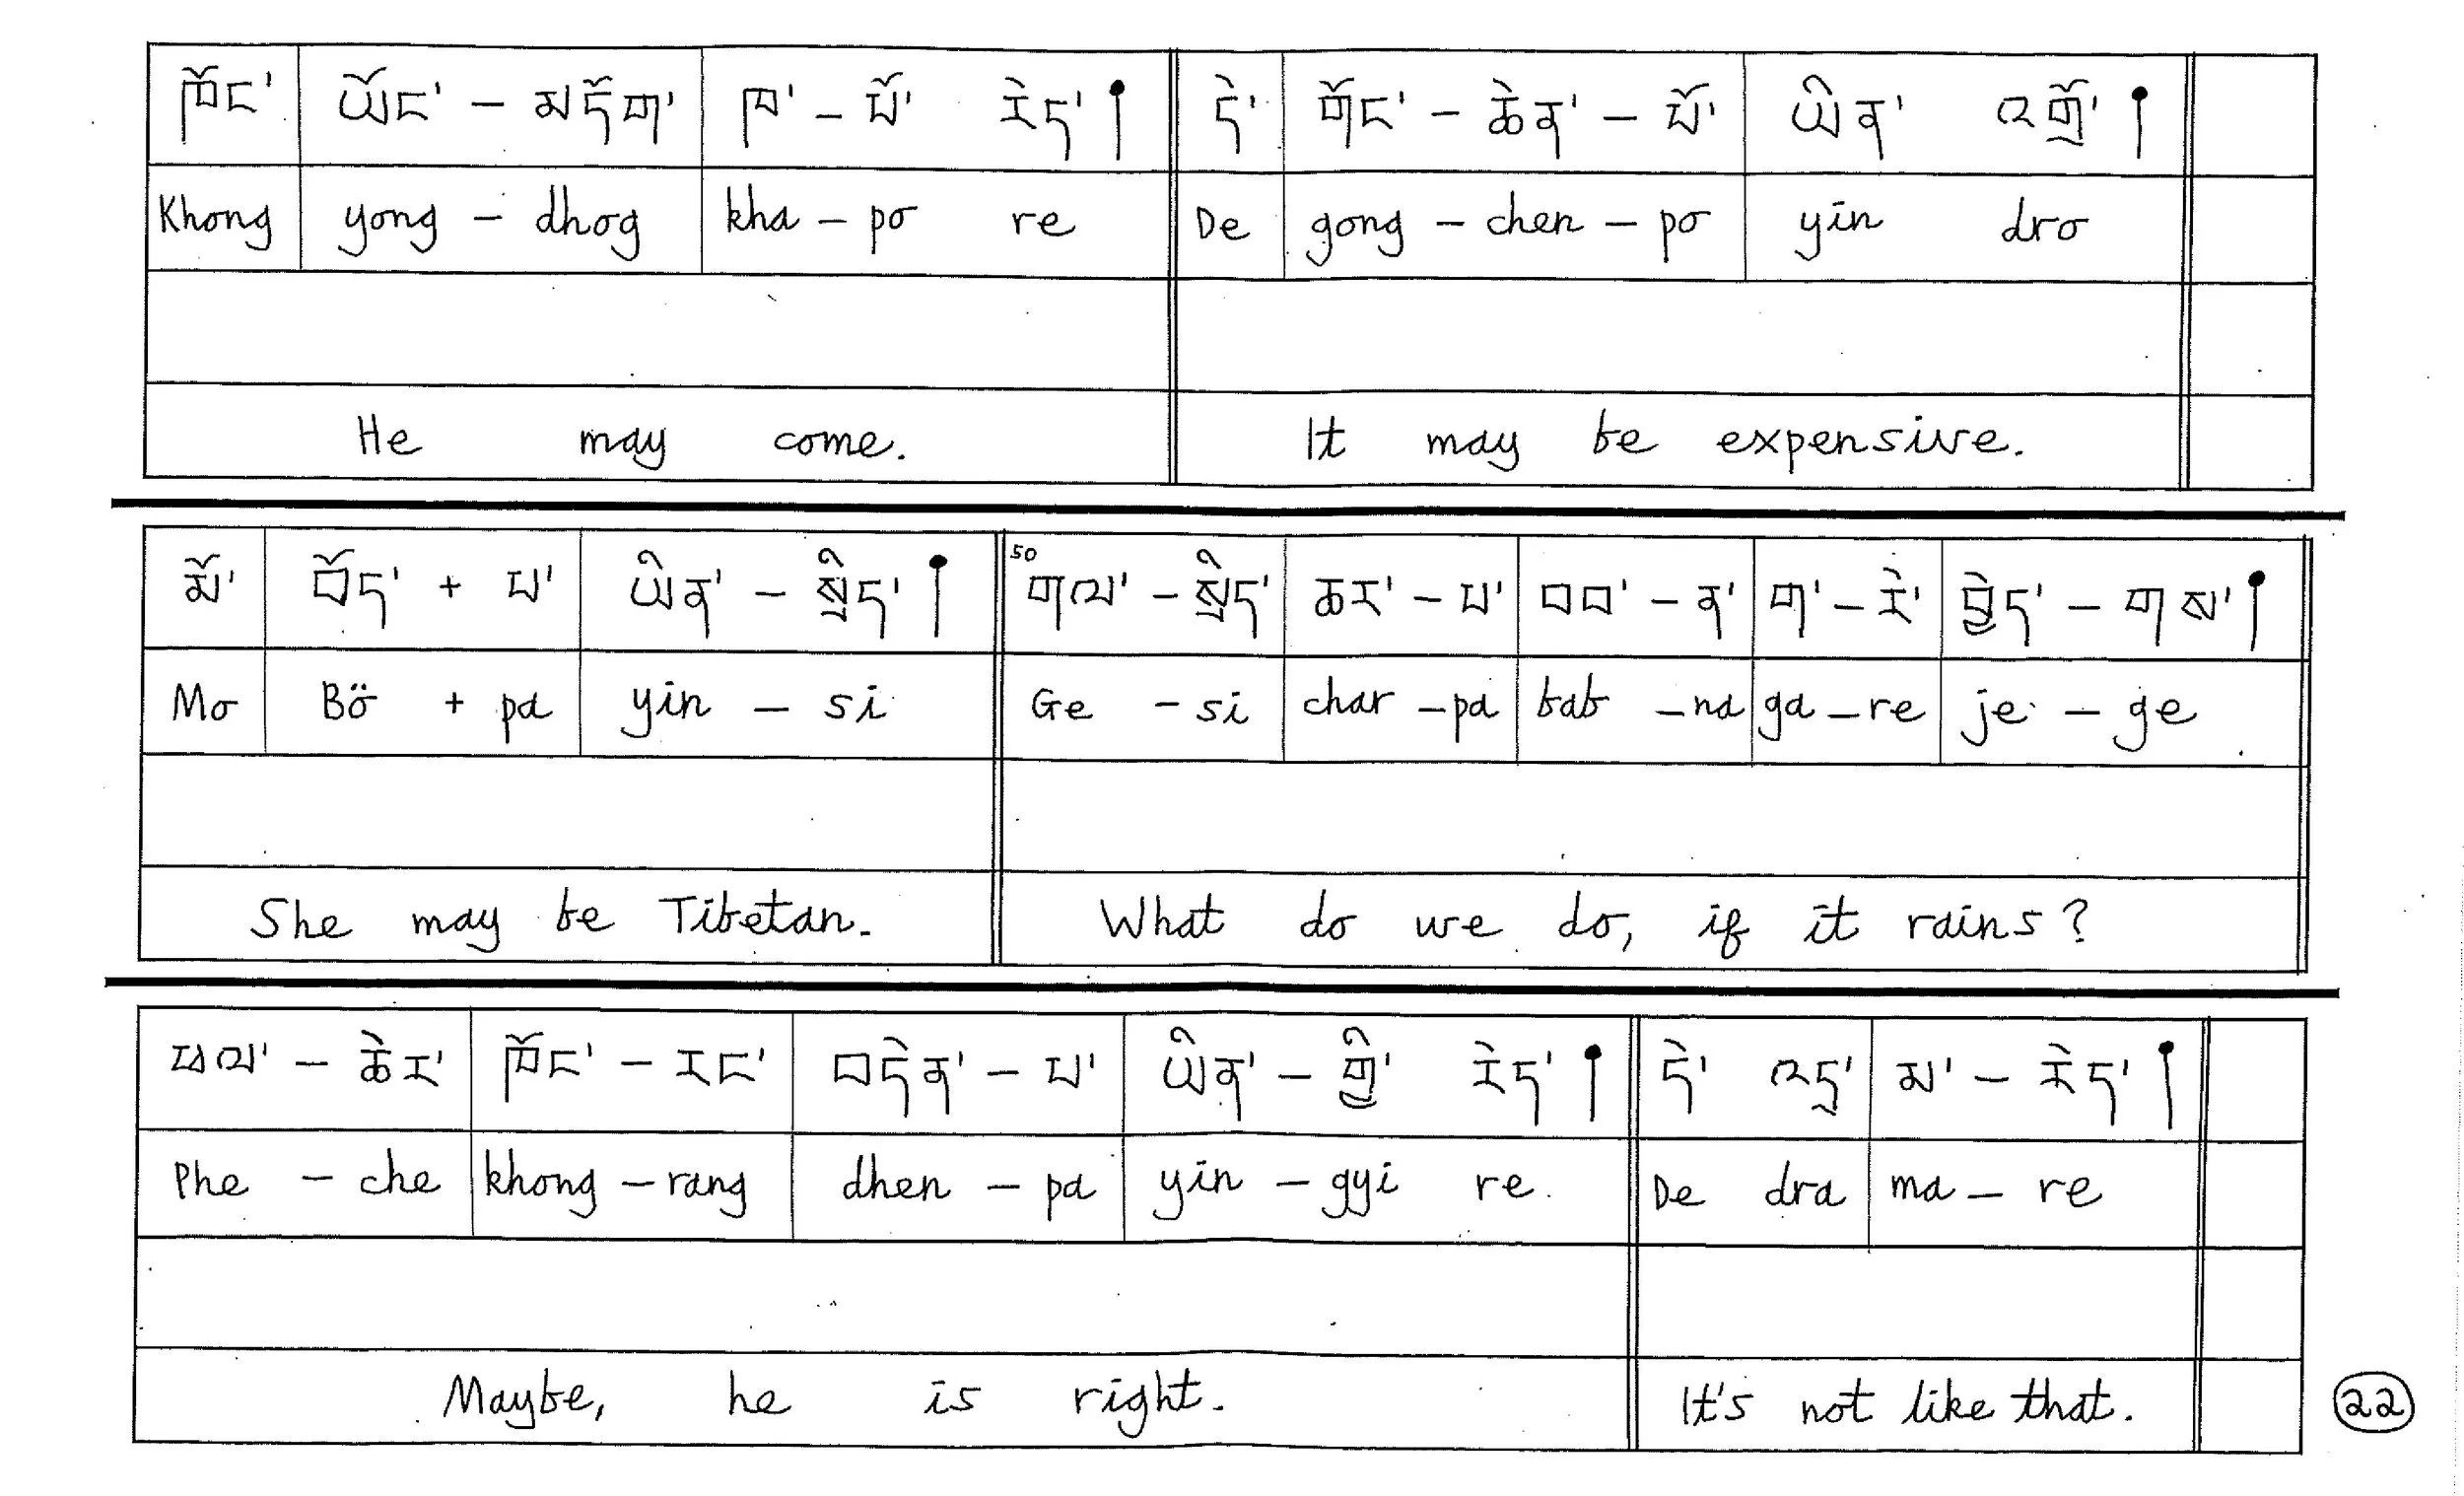 ཁོང་ ཡོང་ - མདོག་ ཁ་ - པོ་ རེད་། དེ་ གོང་ - ཆེན་ - པོ་ ཡིན་ འགྲོ་།
Khong yong - dhog kha - po re De gong - chen - po yin dro
He may come. It may be expensive.
མོ་ བོད་ + པ་ ཡིན་ - སྲིད་། 50 གལ་ - སྲིད་ ཆར་ - པ་ བབ་ - ན་ ག་ - རེ་ བྱེད་ - གས་།
Mo Bö + pa yin - si Ge - si char - pa bab - na ga - re je - ge
She may be Tibetan. What do we do, if it rains?
ཕལ་ - ཆེར་ ཁོང་ - རང་ བདེན་ - པ་ ཡིན་ - གྱི་ རེད་། དེ་ འདྲ་ མ་ - རེད་།
Phe - che khong - rang dhen - pa yin - gyi re De dra ma - re
Maybe, he is right. It's not like that.
22